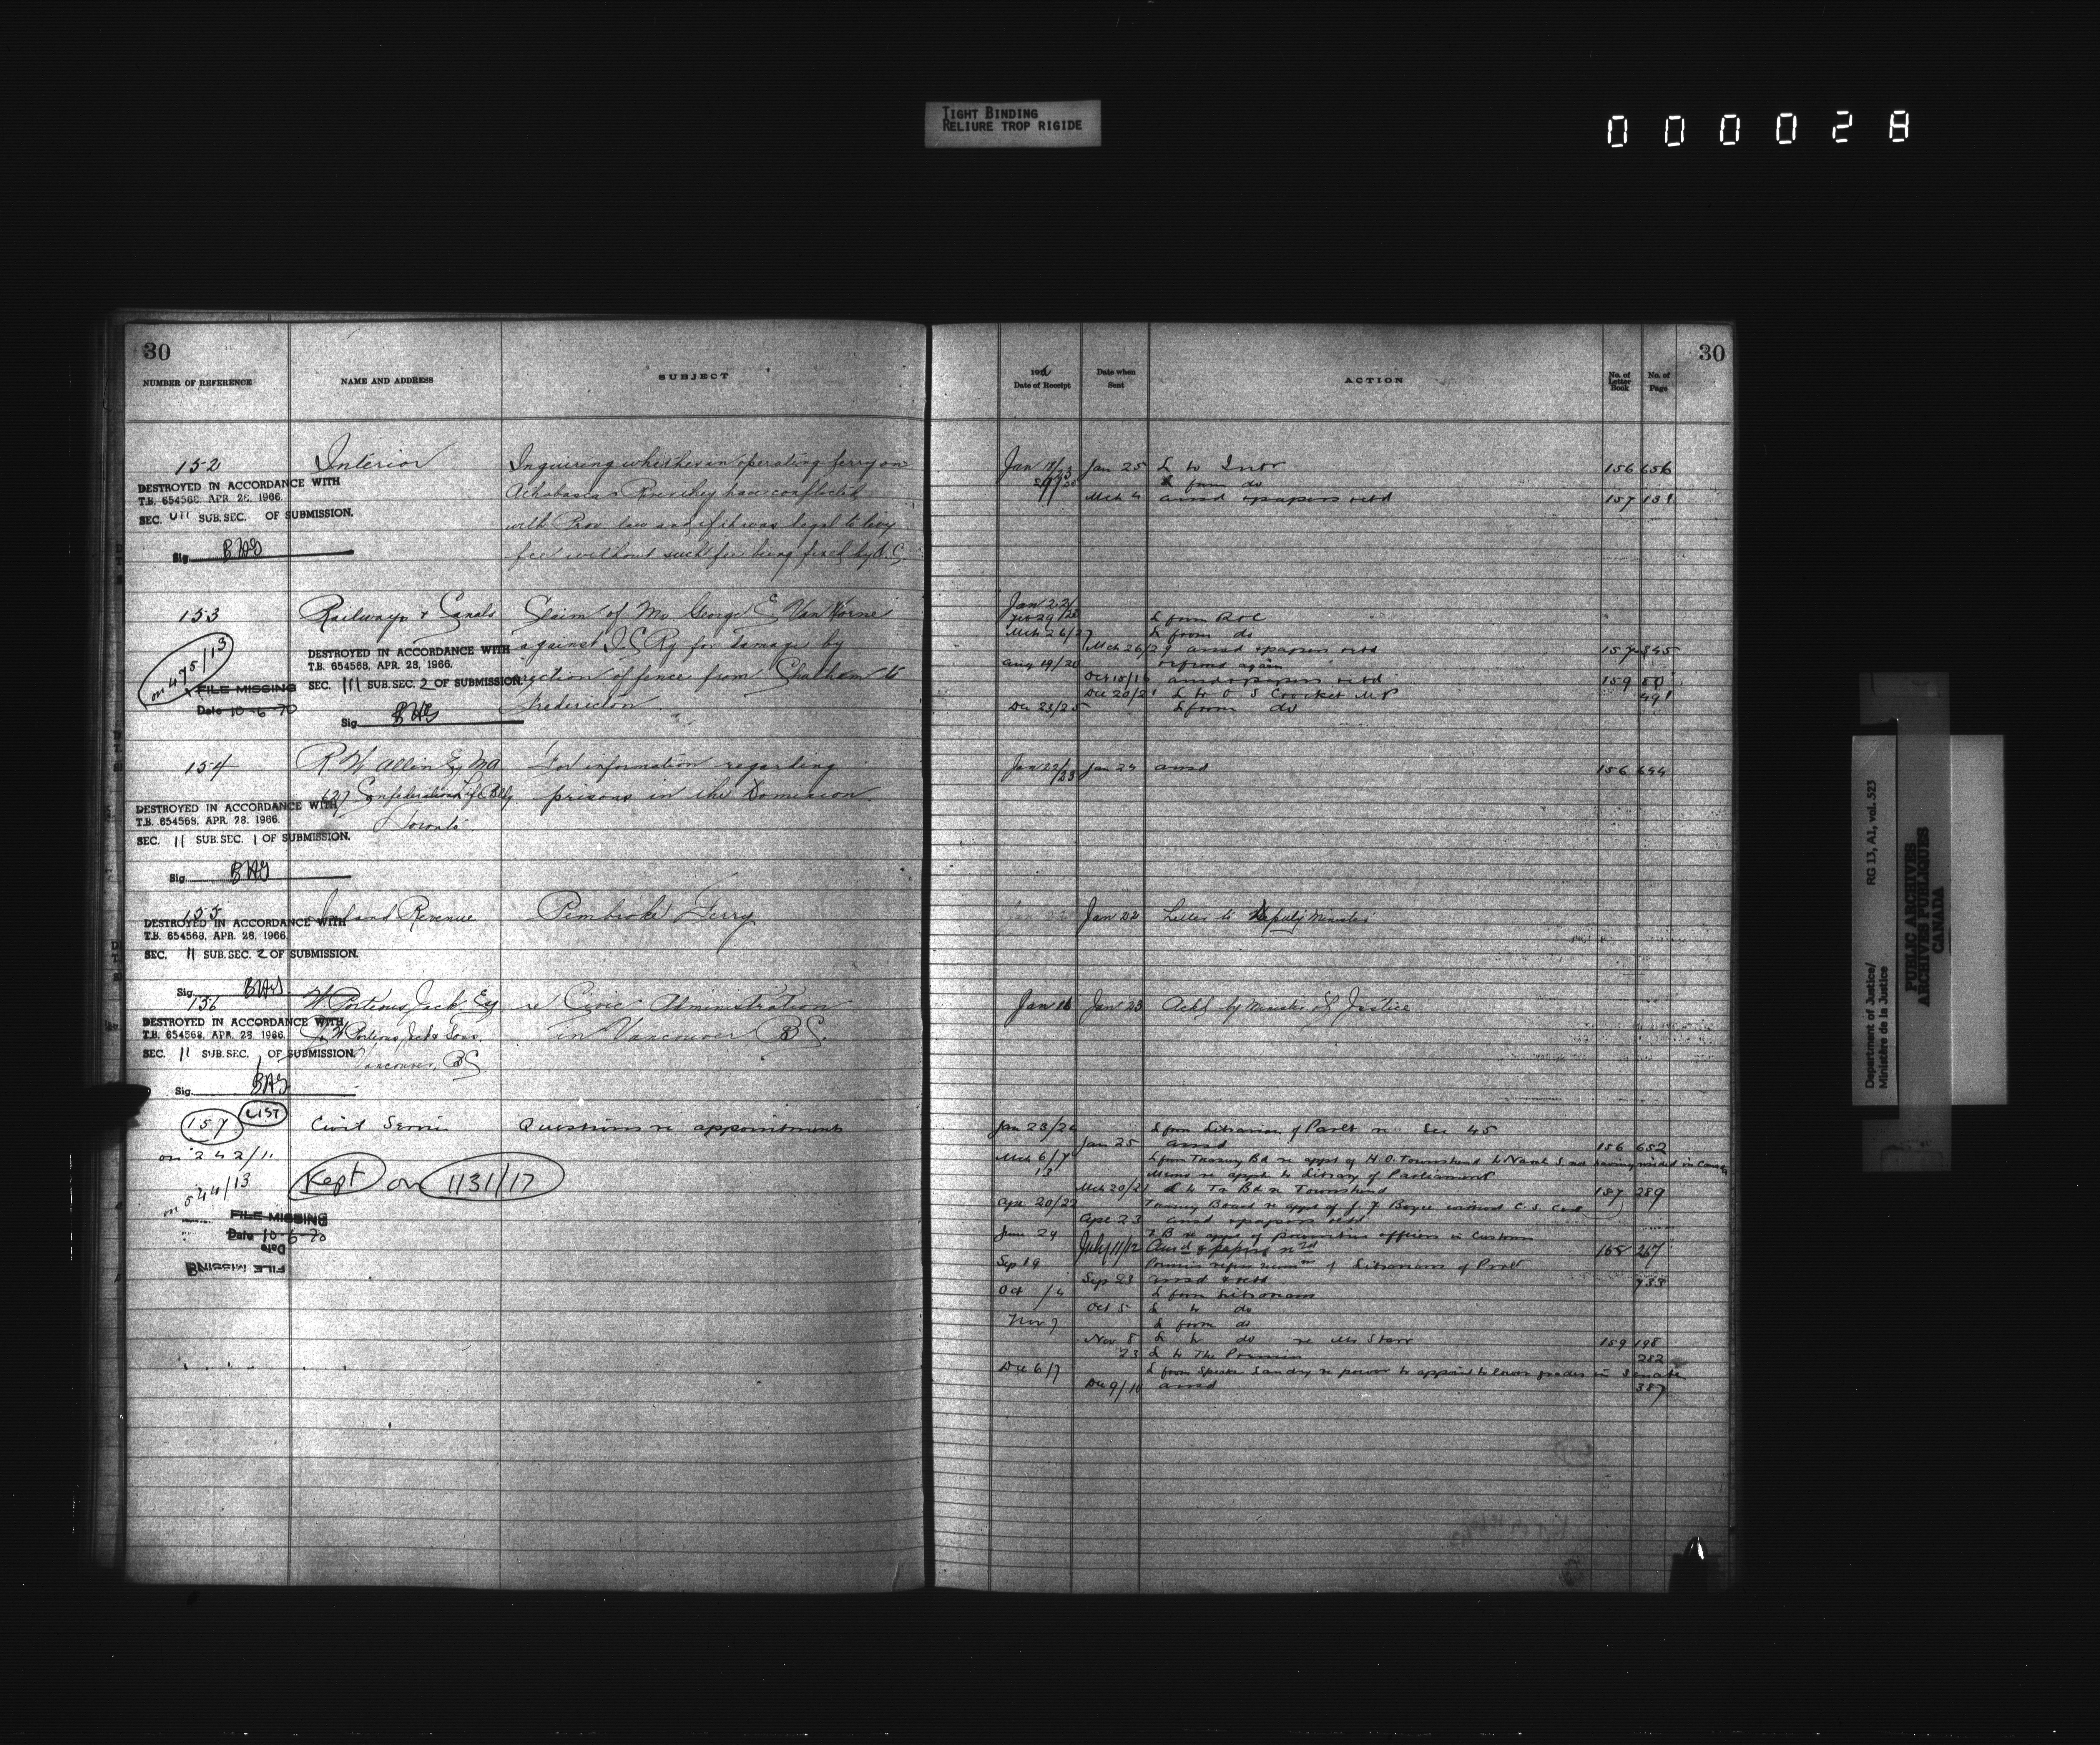 TIGHT BINDING
RELIURE TROP RIGIDE
000028
30
NUMBER OF REFERENCE
NAME AND ADDRESS
SUBJECT
152
Interior
Inquiring whether in operating ferry on
Athabasca River they have conflicted
with Prov. law and if it was legal to levy
fee without such fee being fixed by
DESTROYED IN ACCORDANCE WITH
T.B. 654568, APR. 28, 1966.
SEC. SUB.SEC. OF SUBMISSION.
Sig. BAG
153
Railways & Canals
Claim of Mr George E Van Horne
against I.C. Ry for damage by
erection of fence from Chatham to
Fredericton.
on 475/13
FILE MISSING
Date 10-6-70
DESTROYED IN ACCORDANCE WITH
T.B. 654568, APR. 28, 1966.
SEC. 111 SUB.SEC. 2 OF SUBMISSION.
Sig. BAG
154
R W Allin Esq MA
627 Confederation Life Bldg
Toronto
For information regarding
prisons in the Dominion.
DESTROYED IN ACCORDANCE WITH
T.B. 654568, APR. 28, 1966.
SEC. 11 SUB.SEC. 1 OF SUBMISSION.
Sig. BAG
155
Inland Revenue
Pembroke Ferry
DESTROYED IN ACCORDANCE WITH
T.B. 654568, APR. 28, 1966.
SEC. 11 SUB.SEC. 2 OF SUBMISSION.
Sig. BAG
156
W Porteous Jack Esq
W Porteous Jack & Sons.
Vancouver, BC
re Civic Administration
in Vancouver BC.
DESTROYED IN ACCORDANCE WITH
T.B. 654568, APR. 28, 1966.
SEC. 11 SUB.SEC. 1 OF SUBMISSION.
Sig. BAG
157
LIST
Civil Service
Questions re appointments
on 242/11
on 544/13
Kept on 1131/17
FILE MISSING
Date 10-6-70
Date
FILE MISSING
30
Date of Receipt
Date when Sent
ACTION
No. of Letter Book
No. of Page
Jan 25 L to Intr 156 656
L from do
Mch 4 ansd & papers retd 157 131
Jan 22/
L from R & C
Mch 26/27 L from do
Mch 26/29 ansd & papers retd 157 345
Aug 19/20 referred again
Oct 15/16 ansd & papers retd 159 50
Dec 20/21 L to O S Crocket MP 491
Dec 23/25 L from do
Jan 22/23 Jan 24 ansd 156 644
Jan 22 Letter to Deputy Minister
Jan 16 Jan 23 Ackd by Minister of Justice
Jan 23/24 L from Librarian of Parlt re Sec 45
Jan 25 ansd 156 652
Mch 6/7 L from Treasury Bd re appt of H.O. Townshend to
13 Memo re appts to Library of Parliament
Mch 20/21 L to Tr Bd re Townshend 157 289
Apr 20/22 Treasury Board re appt of J. F Boyce without C. S. Cert
Apr 23 ansd & papers retd
June 24 T B re appt of officers in Customs
July 11/12 Ansd & papers rtd 158 267
Sep 19 Librarians of Parlt
Sep 23 ansd & retd 733
Oct /4 L from Librarians
Oct 5 L to do
Nov 7 L from do
Nov 8 L to do re Mr Starr 159 198
23 L to The Premier 282
Dec 6/7 L from Speaker Landry re power to appoint to lower grades in Senate
Dec 9/10 ansd 387
Department of Justice/
Ministère de la Justice
RG 13, A1, vol. 523
PUBLIC ARCHIVES
ARCHIVES PUBLIQUES
CANADA